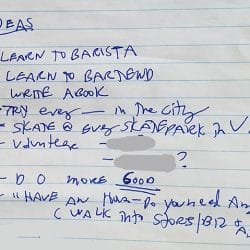 IDEAS
LEARN TO BARISTA
LEARN TO BARTEND
WRITE A BOOK
- TRY every — in the City
- SKATE @ every SKATEPARK in V
- Volunteer -
- ?
- DO MORE GOOD
- "HAVE AN Hour - Do you need An
( WALK into STORES/BIZ &